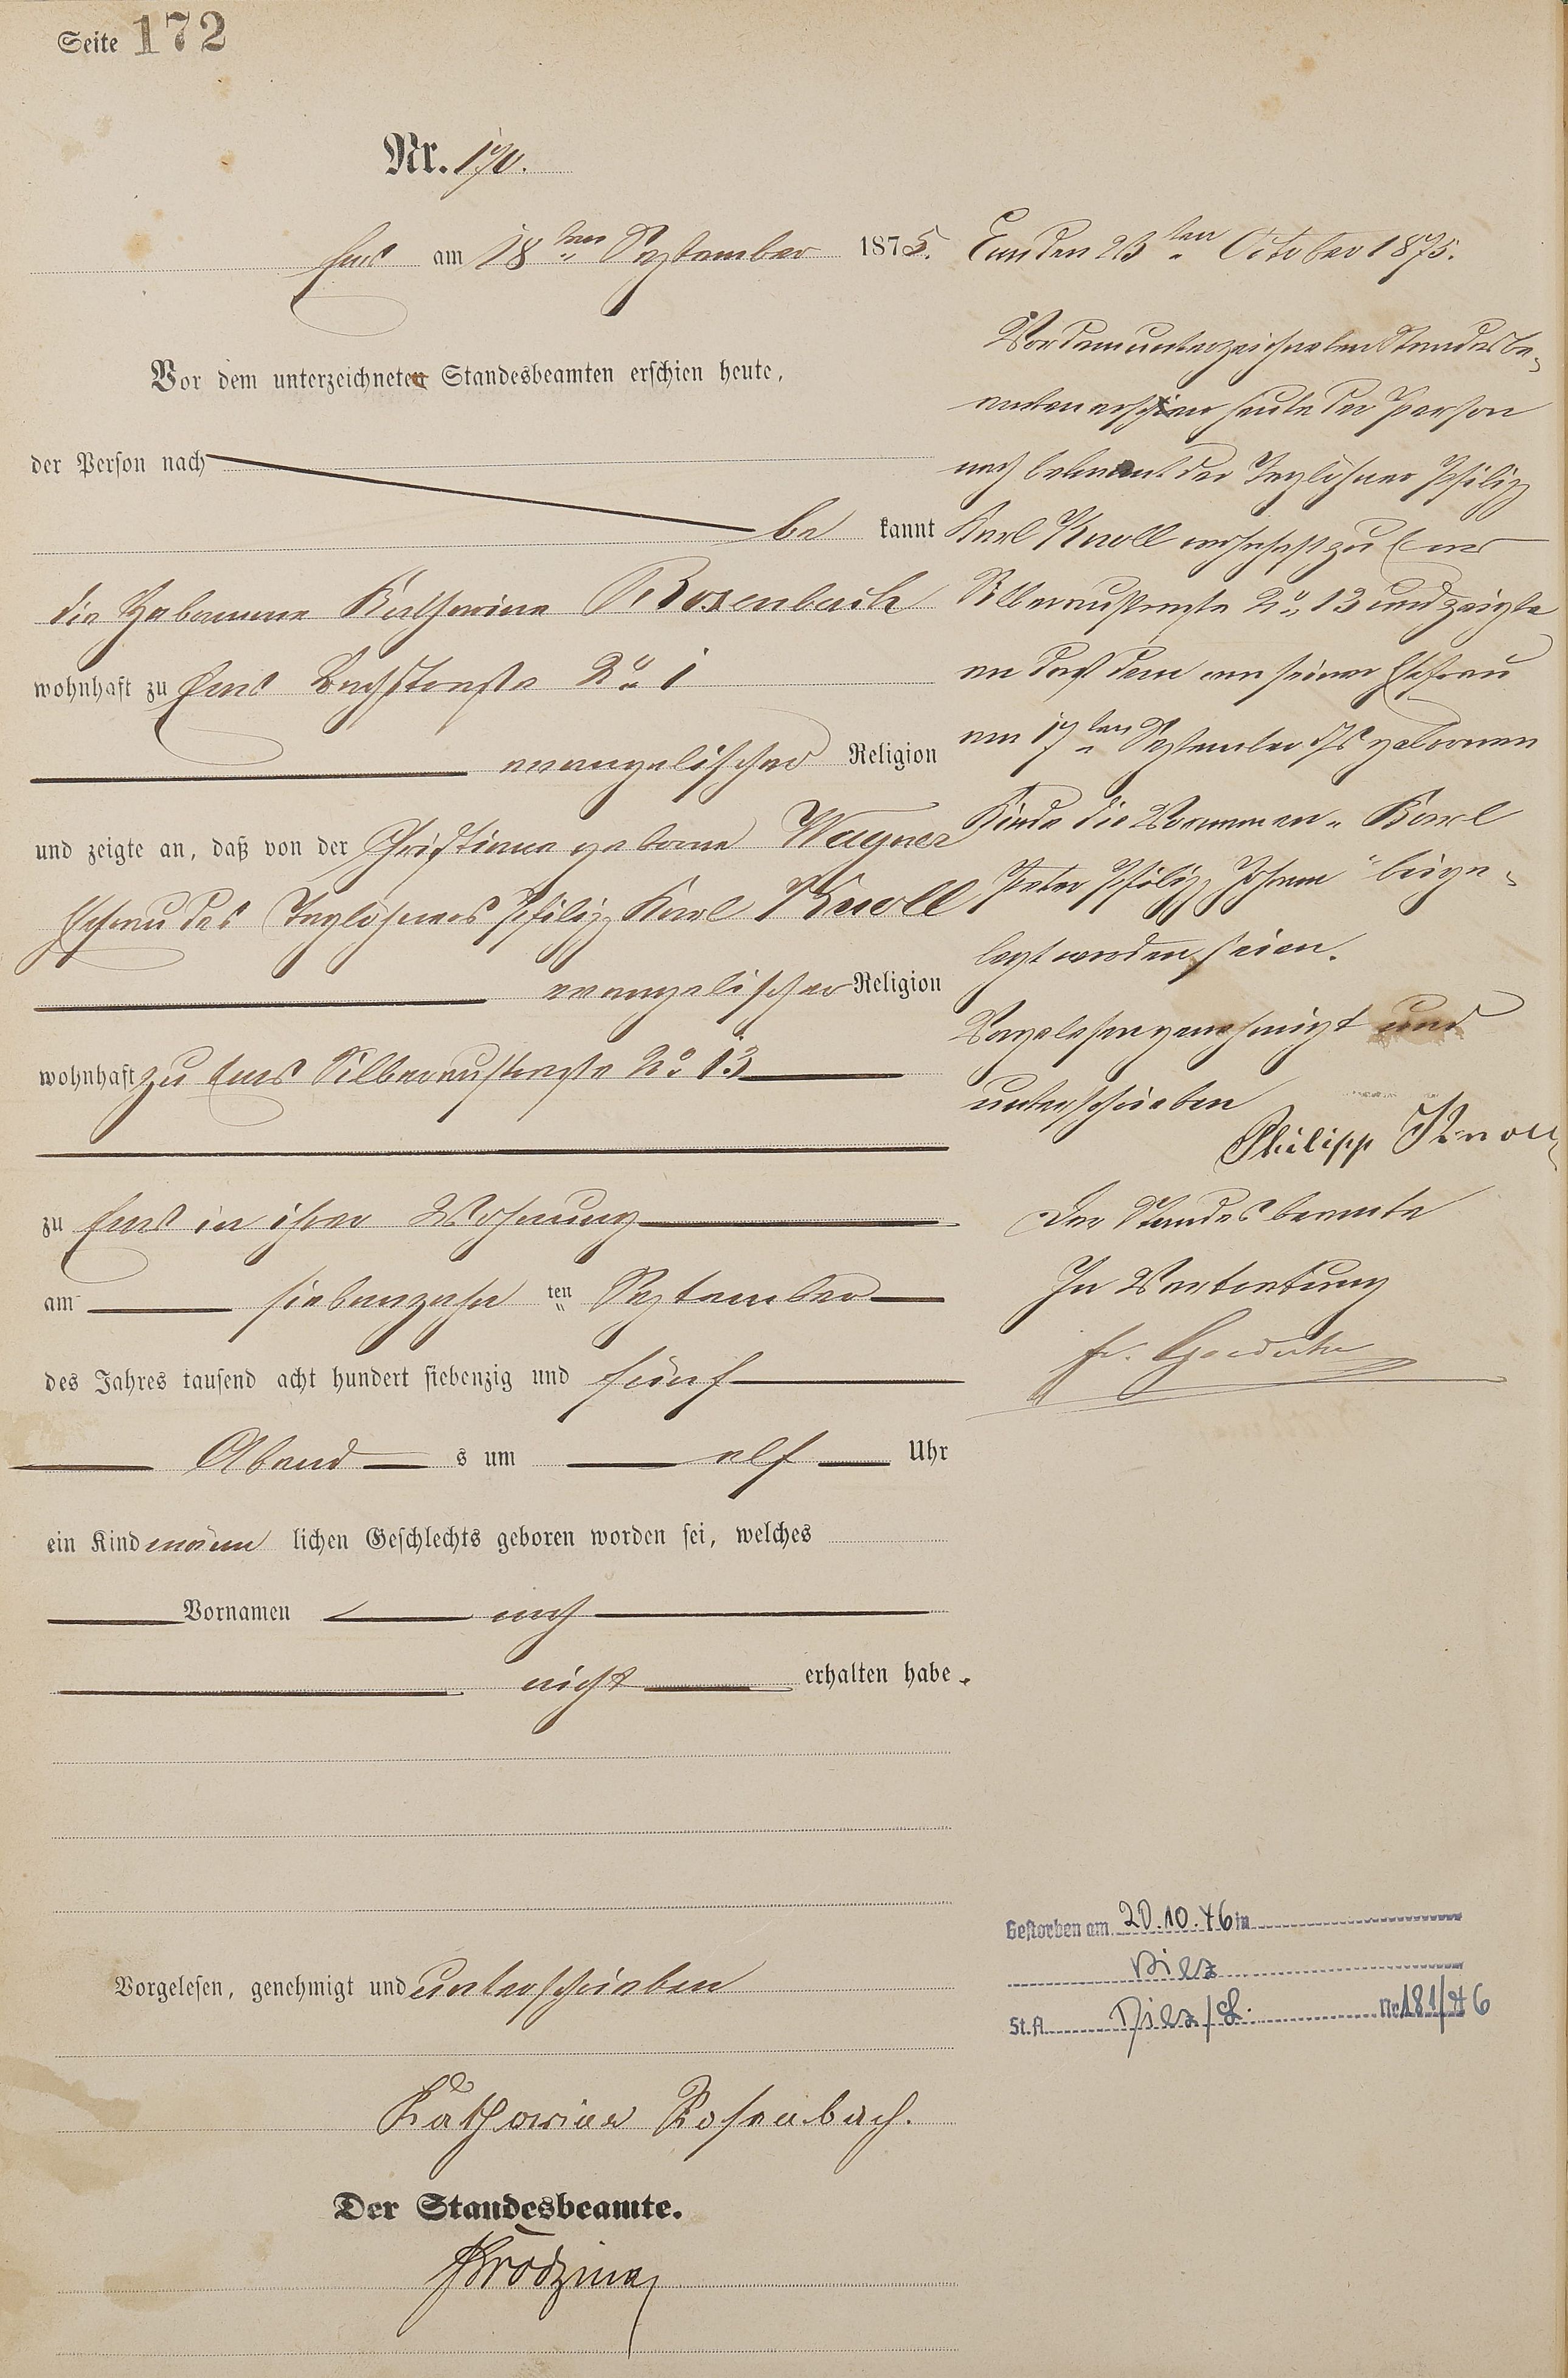 Seite 172
Nr. 170.
Ems am 18ten September 1875.
Vor dem unterzeichneten Standesbeamten erschien heute,
der Person nach
be kannt
die Hebamme Katharina Rosenbach
wohnhaft zu Ems Bachstraße No 1
evangelischer Religion
und zeigte an, daß von der Christiane geborne Wagner
Ehefrau des Taglöhners Philipp Karl Knoll
evangelischer Religion
wohnhaft zu Ems Silberaustraße No 13
zu Ems in ihrer Wohnung
am siebenzehn ten September
des Jahres tausend acht hundert siebenzig und fünf
Abend s um elf Uhr
ein Kind männ lichen Geschlechts geboren worden sei, welches
Vornamen noch
nicht erhalten habe.
Vorgelesen, genehmigt und unterschrieben
Katharina Rosenbach.
Der Standesbeamte.
Ems den 23ten October 1875.
Vor dem unterzeichneten Standesbe-
amten erschien heute der Person
nach bekannt der Taglöhner Philipp
Karl Knoll wohnhaft zu Ems
Silberaustraße No 13 und zeigte
an daß dem von seiner Ehefrau
am 17ten September d/Js geborenen
Kinde die Vornamen „Karl
Peter Philipp Johann" beige-
legt worden seien.
Vorgelesen genehmigt und
unterschrieben
Philipp Knoll
Der Standesbeamte
In Vertretung
Gestorben am 20.10.46 in
Diez
St.A. Diez/L. Nr. 181/46